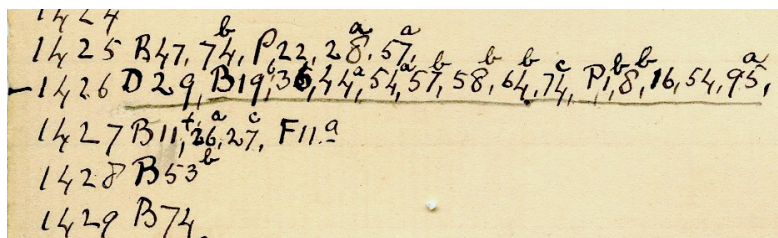 1424
1425 B47, 74ᵇ, P22, 28ᵃ, 57ᵃ,
1426 D29, B19, 36, 44ᵃ, 54ᵃ, 57ᵇ, 58ᵇ, 64ᵇ, 74ᶜ, P1, 8ᵇ, 16, 54, 95ᵃ,
1427 B11, 26ᵃ, 27ᶜ, F11.ᵃ
1428 B53ᵇ
1429 B74